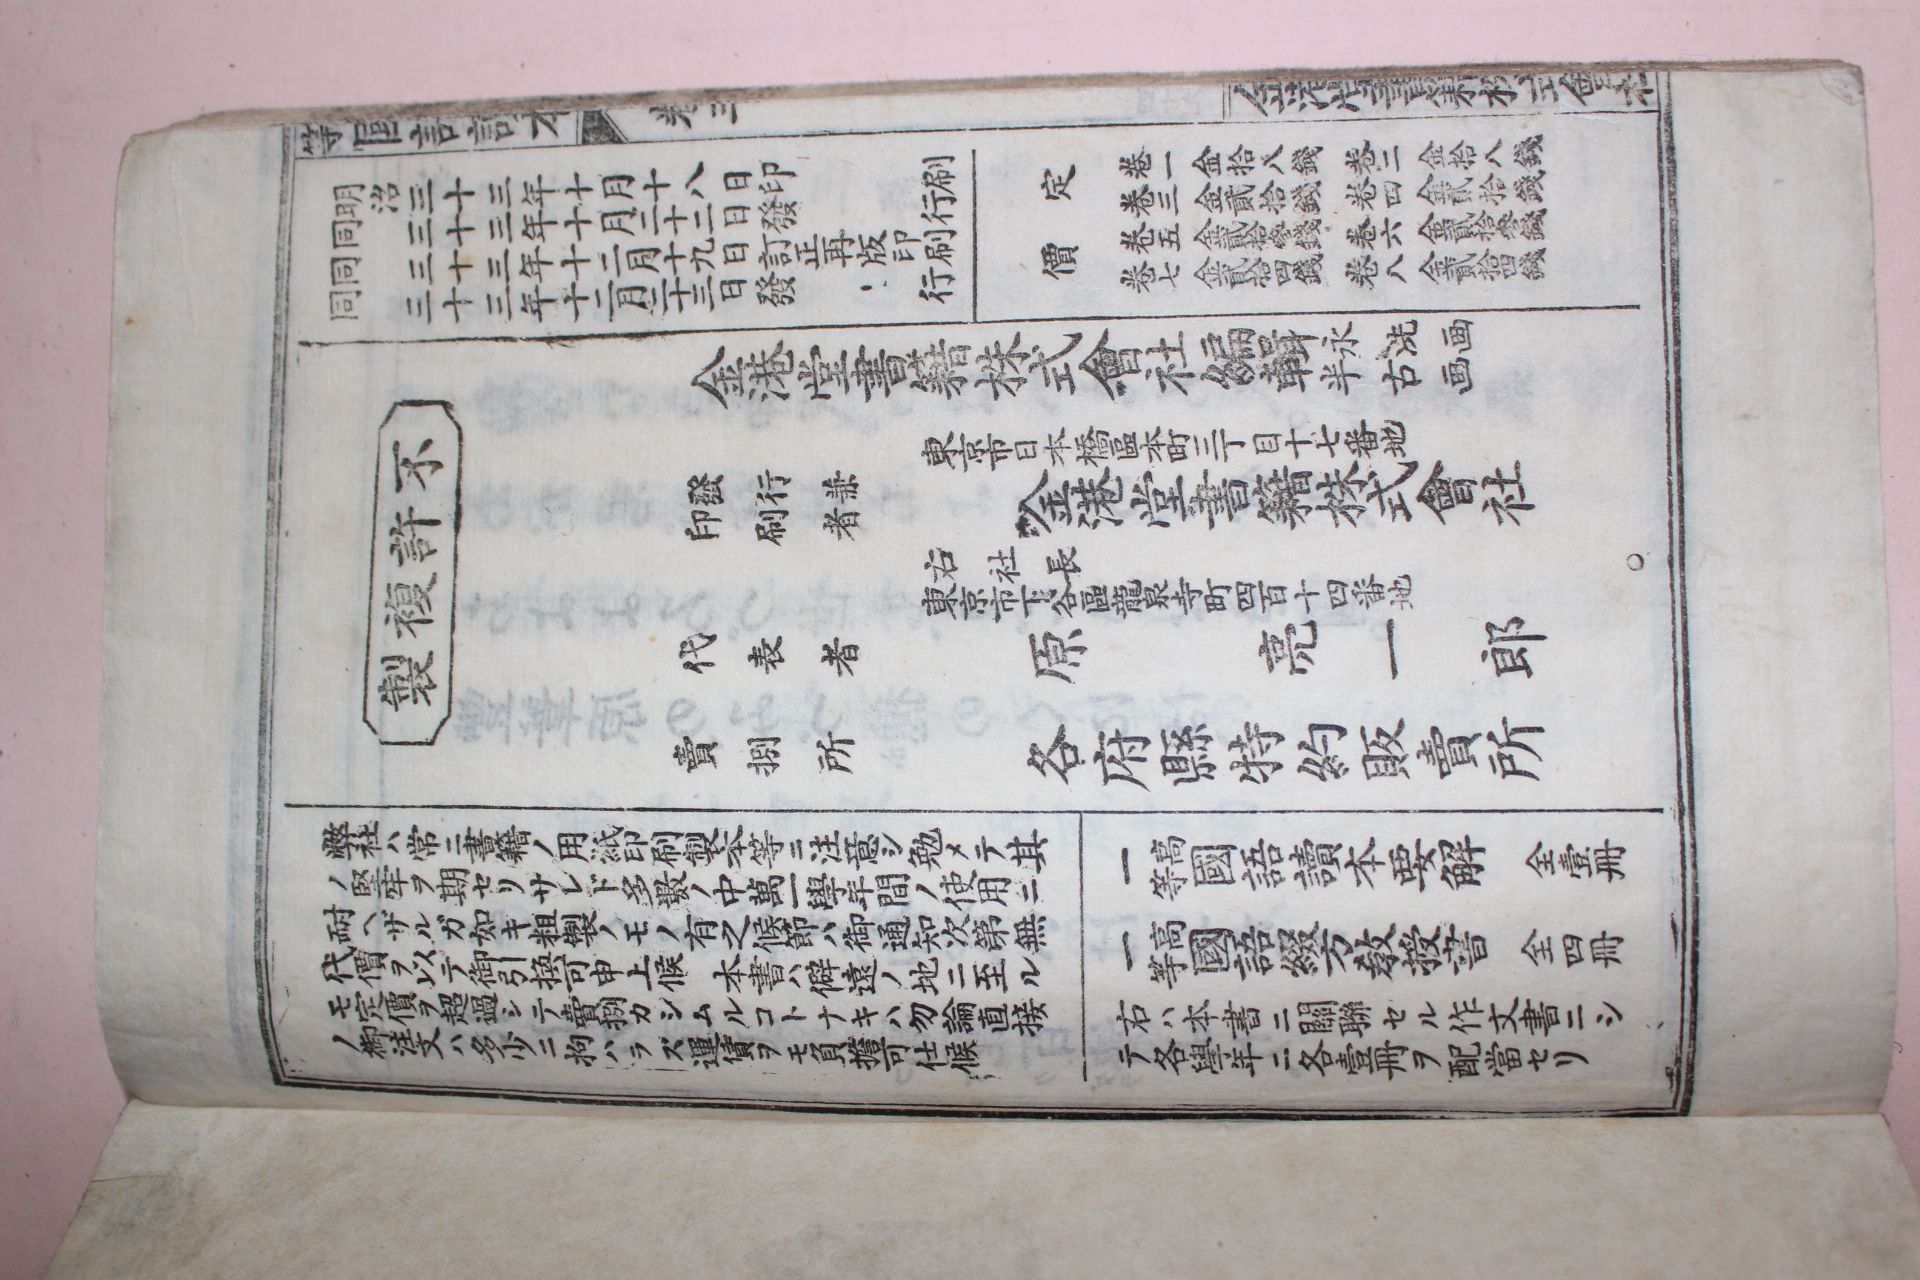 等國語讀本 卷三
金港堂書籍株式會社
明治三十三年十月十八日印刷
同三十三年十月二十二日發行
同三十三年十二月十九日訂正再版印刷
同三十三年十二月二十三日發行
定價
卷一 金拾八錢 卷二 金拾八錢
卷三 金貳拾錢 卷四 金貳拾錢
卷五 金貳拾參錢 卷六 金貳拾參錢
卷七 金貳拾四錢 卷八 金貳拾四錢
金港堂書籍株式會社編輯
永洗画
半古画
不許複製
東京市日本橋區本町三丁目十七番地
發行兼印刷者 金港堂書籍株式會社
右社長
東京市下谷區龍泉寺町四百十四番地
代表者 原亮一郎
賣捌所 各府縣特約販賣所
弊社ハ常ニ書籍ノ用紙印刷製本等ニ注意シ勉メテ其
ノ堅牢ヲ期セリサレド多數ノ中萬一學年間ノ使用ニ
耐ヘザルガ如キ粗製ノモノ有之候節ハ御通知次第無
代價ヲ以テ御引換可申上候 本書ハ僻遠ノ地ニ至ル
モ定價ヲ超過シテ賣捌カシムルコトナキハ勿論直接
ノ御注文ハ多少ニ拘ハラズ運賃ヲモ負擔可仕候
一高等國語讀本要解 全壹冊
一高等國語綴方教授書 全四冊
右ハ本書ニ關聯セル作文書ニシ
テ各學年ニ各壹冊ヲ配當セリ